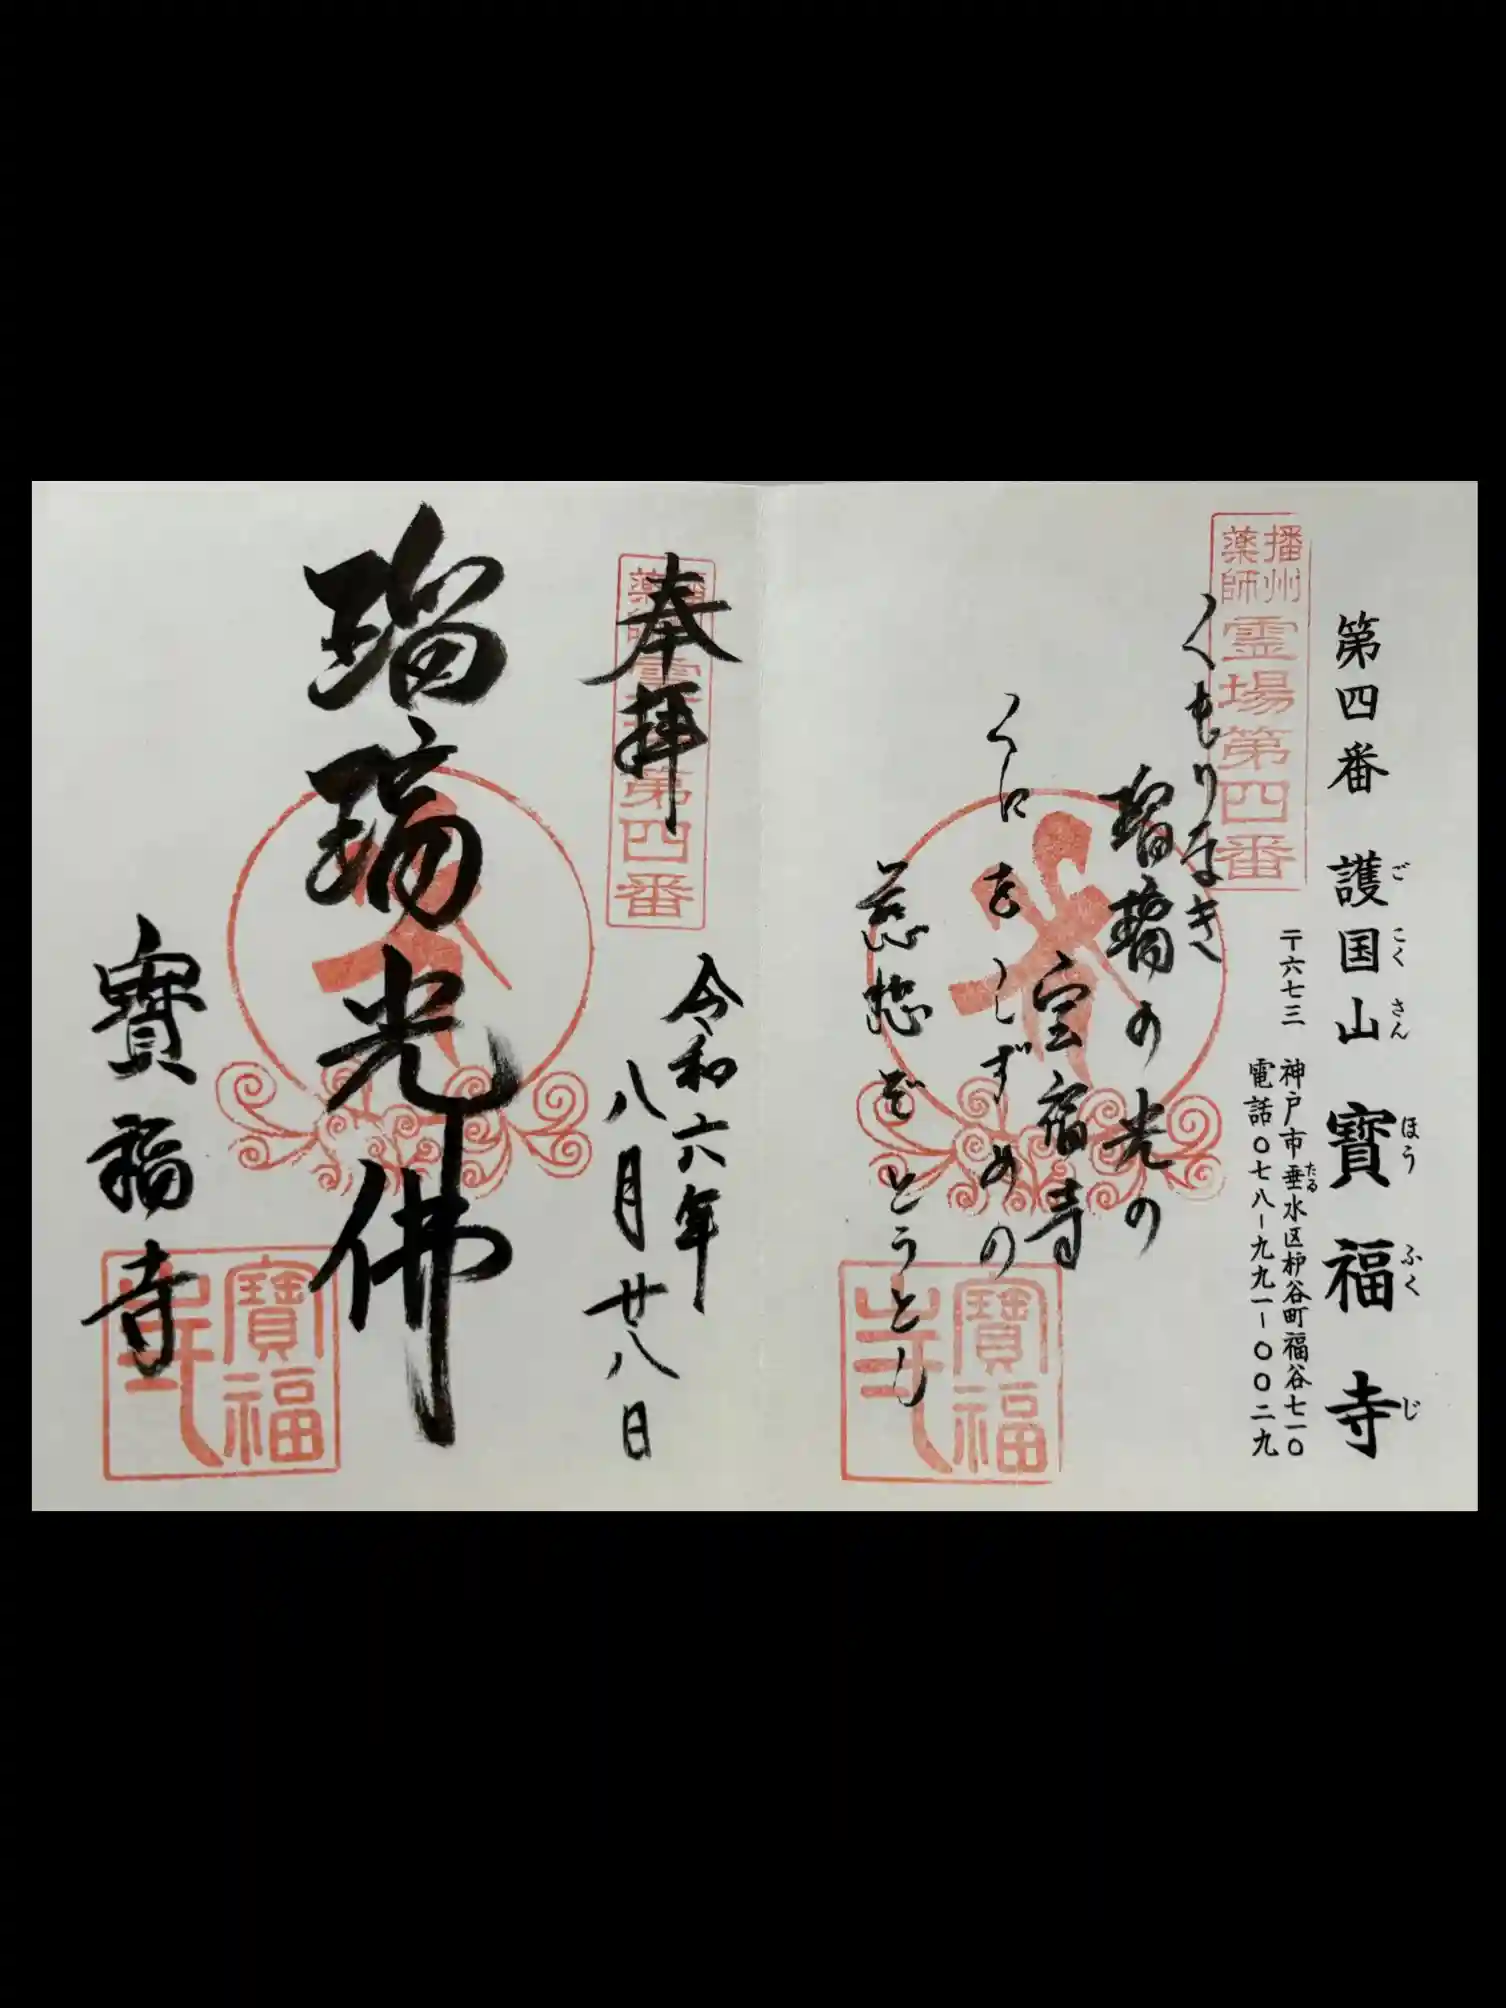 第四番 護国山 寶福寺
ご こく さん ほう ふく じ
〒六七三 神戸市垂水区枦谷町福谷七一〇
たる
電話〇七八-九九一-〇〇二九
播州
薬師
霊場第四番
くもりなき
瑠璃の光の
宝福寺
くにをしずめの
慈悲ぞとうとし
寶福
寺
奉拝
第四番
令和六年
八月廿八日
瑠璃光佛
寶福寺
寶福
寺